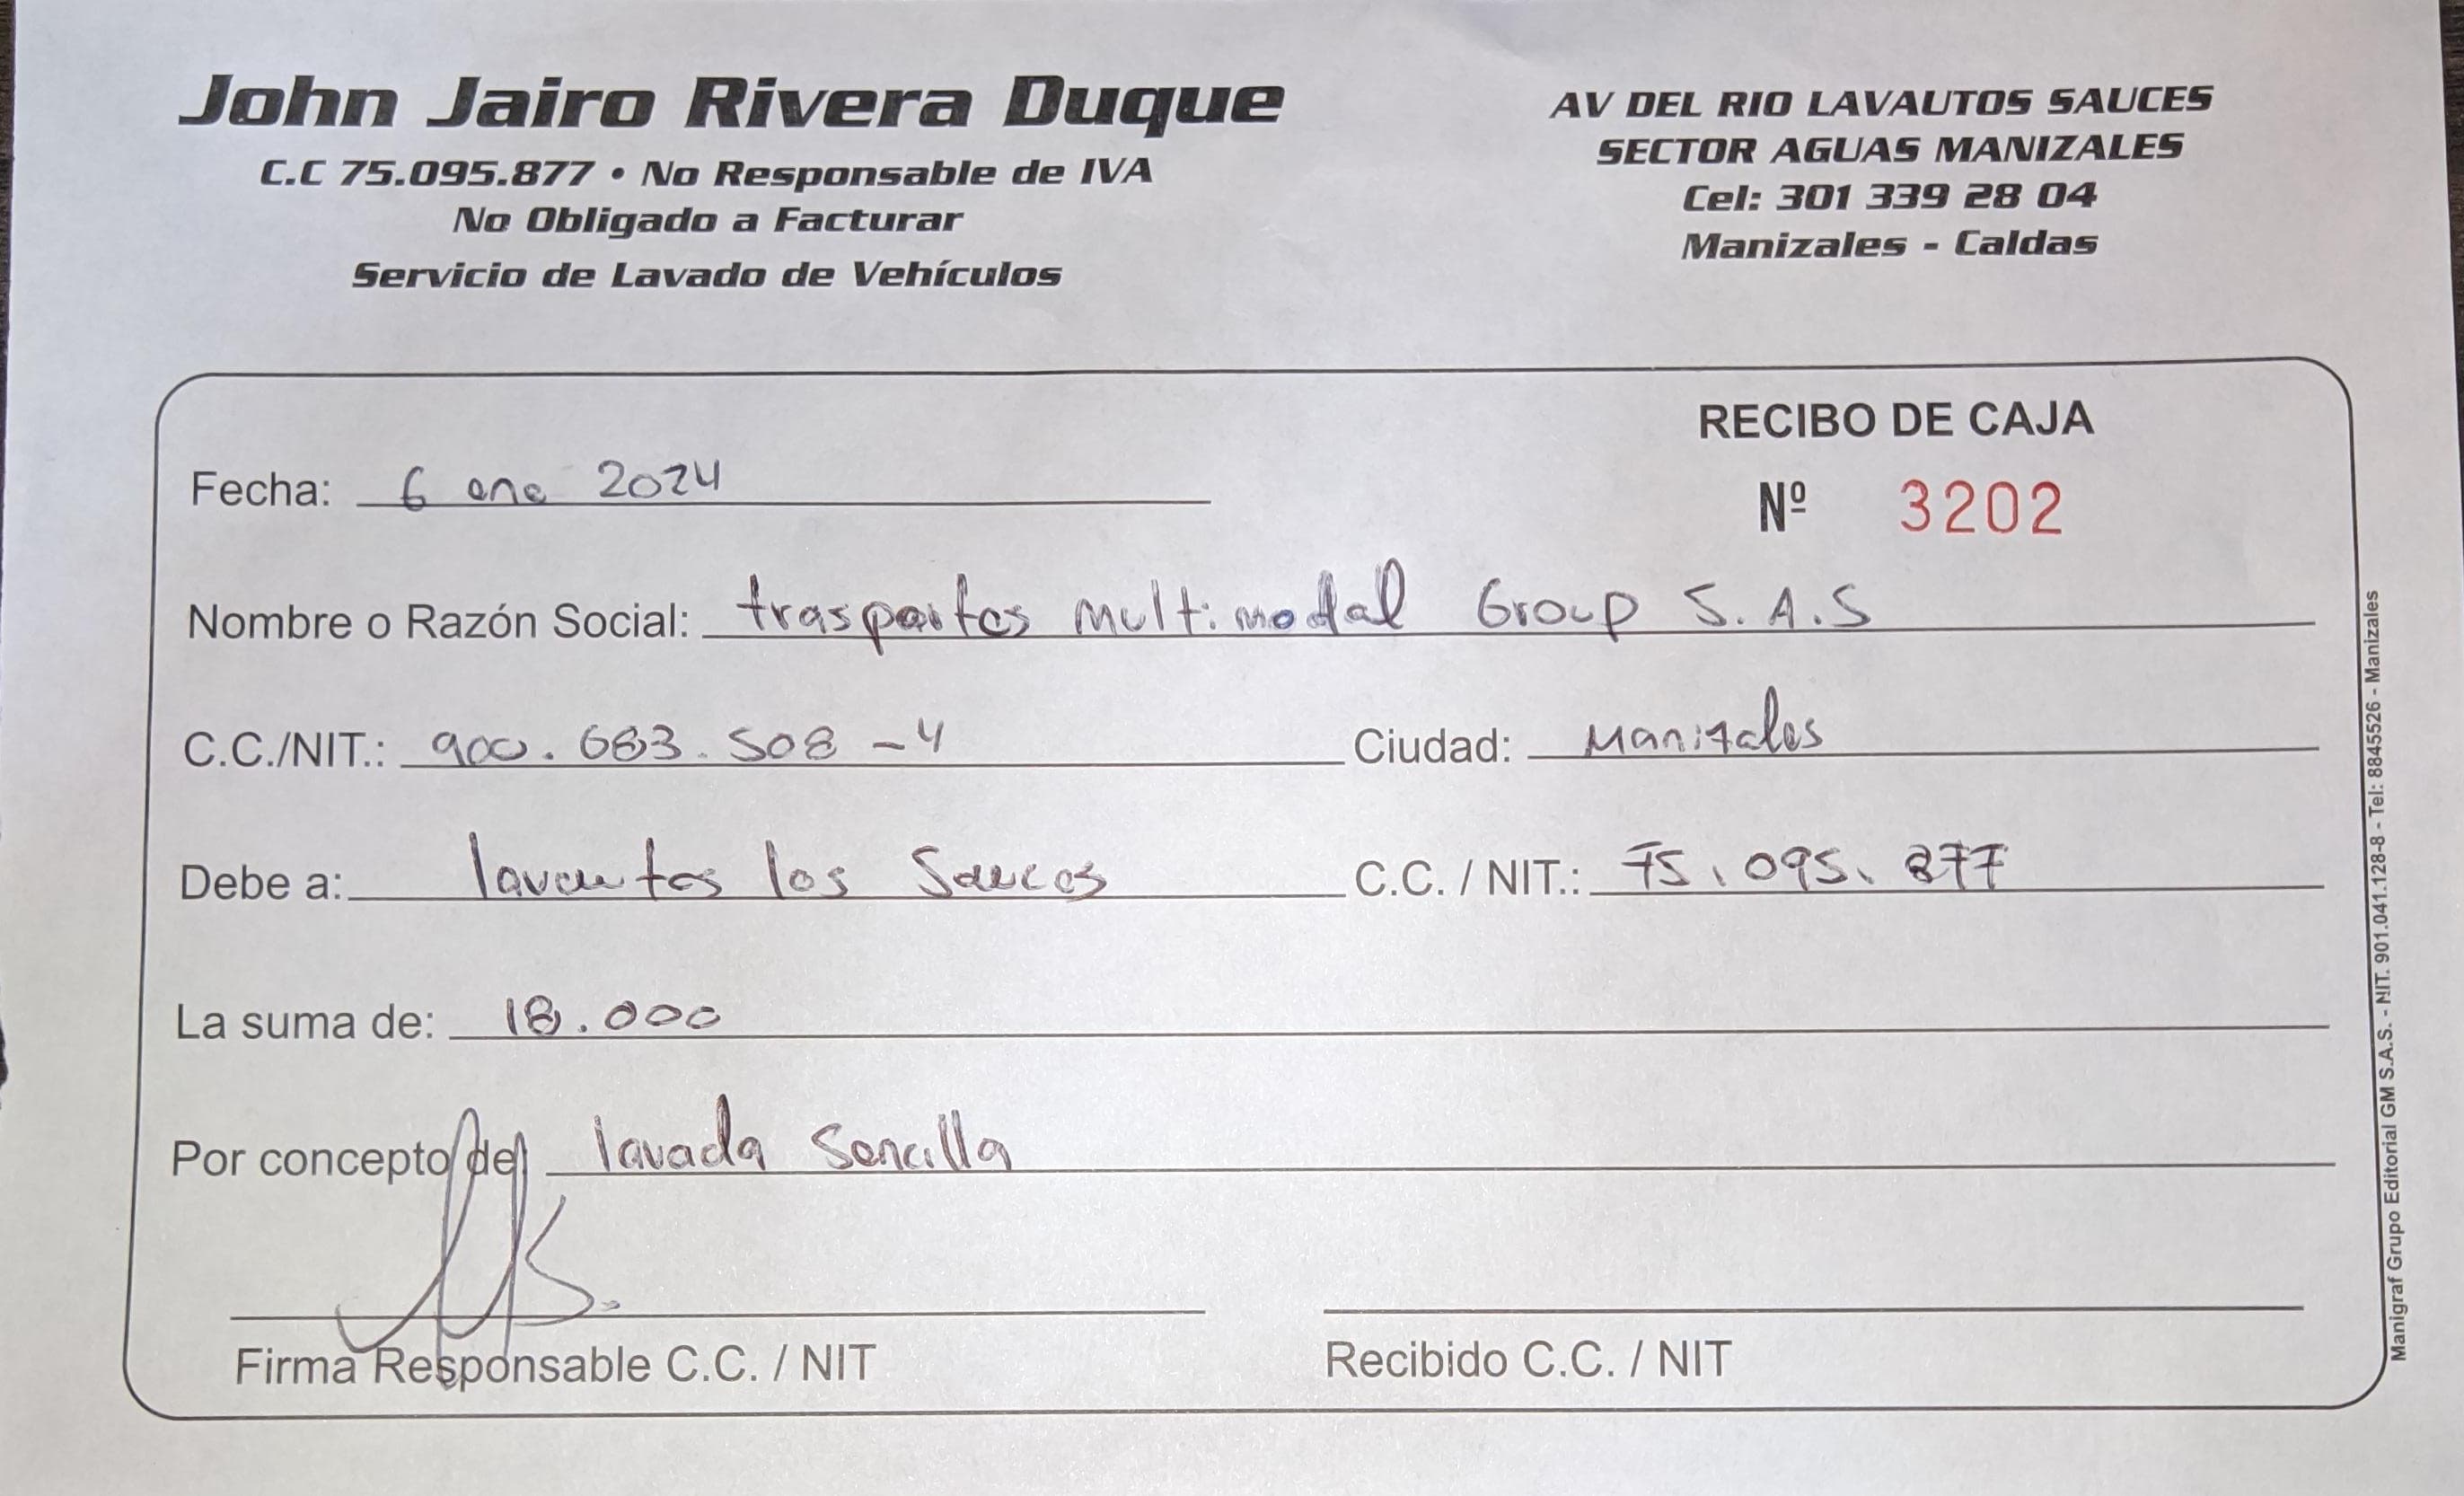 John Jairo Rivera Duque
C.C 75.095.877 • No Responsable de IVA
No Obligado a Facturar
Servicio de Lavado de Vehículos
AV DEL RIO LAVAUTOS SAUCES
SECTOR AGUAS MANIZALES
Cel: 301 339 28 04
Manizales - Caldas
RECIBO DE CAJA
Nº 3202
Fecha: 6 ene 2024
Nombre o Razón Social: trasportes multimodal Group S.A.S
C.C./NIT.: 900.683.508-4 Ciudad: Manizales
Debe a: lavautos los Sauces C.C. / NIT.: 75.095.877
La suma de: 18.000
Por concepto de lavada Sencilla
Firma Responsable C.C. / NIT Recibido C.C. / NIT
Manigraf Grupo Editorial GM S.A.S. - NIT. 901.041.128-8 - Tel: 8845526 - Manizales